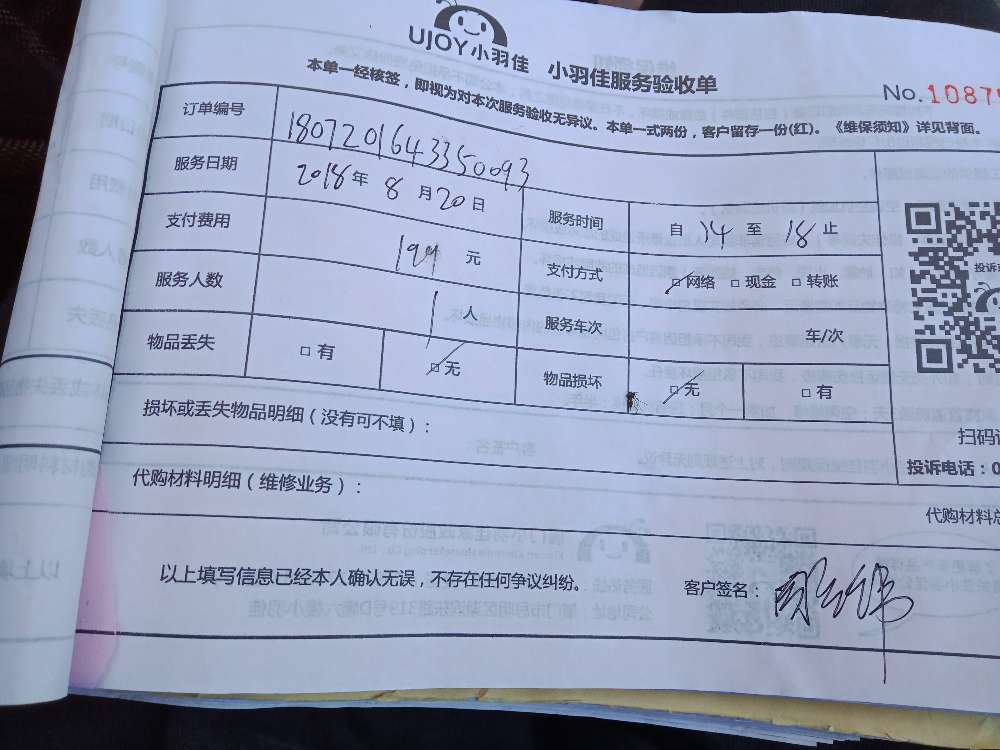 UJOY小羽佳 小羽佳服务验收单
No.1087
本单一经核签，即视为对本次服务验收无异议。本单一式两份，客户留存一份(红)。《维保须知》详见背面。
订单编号 1807201643350093
服务日期 2018年 8 月 20 日 服务时间 自 14 至 18 止
支付费用 199 元 支付方式 □网络 □现金 □转账
服务人数 1 人 服务车次 车/次
物品丢失 □有 □无 物品损坏 □无 □有
投诉
扫码
损坏或丢失物品明细（没有可不填）：
投诉电话：0
代购材料明细（维修业务）：
代购材料总
以上填写信息已经本人确认无误，不存在任何争议纠纷。 客户签名：